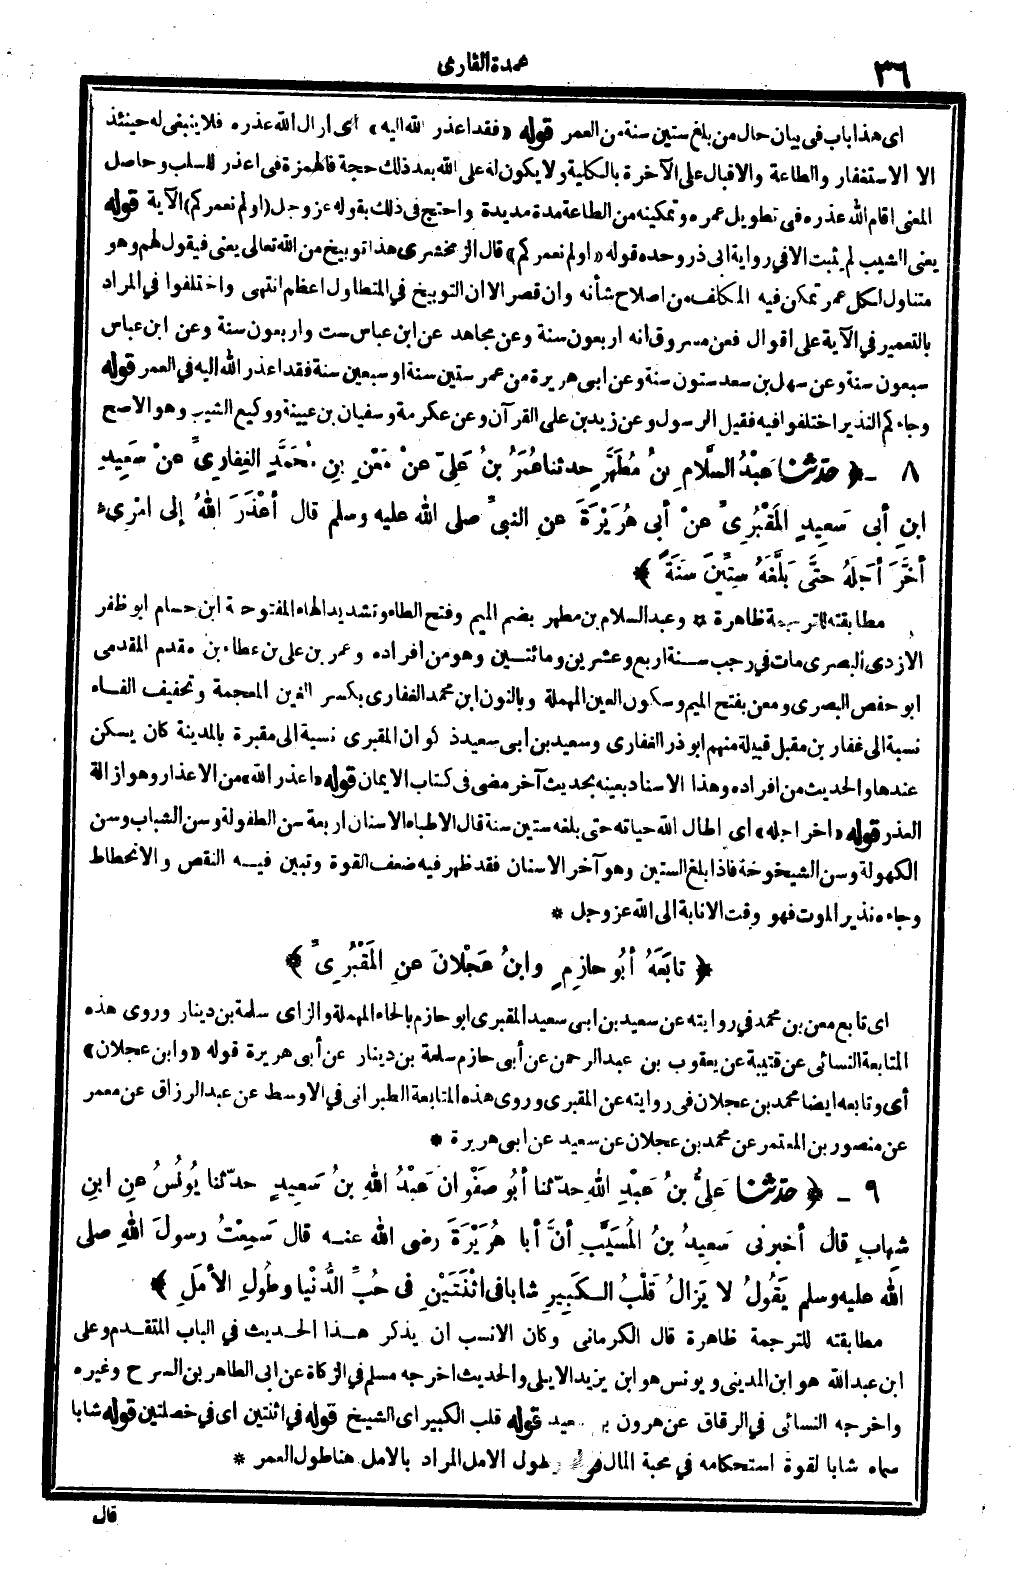 ٣٦
عمدة القارى
اى هذا باب فى بيان حال من بلغ ستين سنة من العمر قوله «فقد اعذر الله اليه» اى ازال الله عذره فلا ينبغى له حينئذ
الا الاستغفار والطاعة والاقبال على الآخرة بالكلية ولا يكون له على الله بعد ذلك حجة فالهمزة فى اعذر للسلب وحاصل
المعنى اقام الله عذره فى تطويل عمره وتمكينه من الطاعة مدة مديدة واحتج فى ذلك بقوله عز وجل (اولم نعمركم) الآية قوله
يعنى الشيب لم يثبت الا في رواية ابى ذر وحده قوله «اولم نعمركم» قال الزمخشرى هذا توبيخ من الله تعالى يعنى فيقول لهم وهو
متناول لكل عمر تمكن فيه المكلف من اصلاح شأنه وان قصر الا ان التوبيخ في المتطاول اعظم انتهى واختلفوا في المراد
بالتعمير في الآية على اقوال فعن مسروق انه اربعون سنة وعن مجاهد عن ابن عباس ست واربعون سنة وعن ابن عباس
سبعون سنة وعن سهل بن سعد ستون سنة وعن ابى هريرة من عمر ستين سنة او سبعين سنة فقد اعذر الله اليه في العمر قوله
وجاءكم النذير اختلفوا فيه فقيل الرسول وعن زيد بن على القرآن وعن عكرمة وسفيان بن عيينة ووكيع الشيب وهو الاصح
٨ - ﴿ حدثنا عَبْدُ السَّلَامِ بنُ مُطَهَّرٍ حدثنا عُمَرُ بنُ عَلِيّ عنْ مَعْنِ بنِ مُحَمَّدٍ الغِفارِيِّ عنْ سَعِيدِ
ابنِ أبى سَعِيدٍ المَقْبُرِىِّ عنْ أبى هُرَيْرَةَ عنِ النبيِّ صلى الله عليه وسلم قال أعْذَرَ اللهُ إلى امْرِىءٍ
أخَّرَ أجَلَهُ حتَّى بَلَّغَهُ ستِّينَ سَنَةً ﴾
مطابقته للترجمة ظاهرة * وعبد السلام بن مطهر بضم الميم وفتح الطاء وتشديد الهاء المفتوحة ابن حسام ابو ظفر
الازدى البصرى مات في رجب سنة اربع وعشرين ومائتين وهو من افراده وعمر بن على بن عطاء بن مقدم المقدمى
ابو حفص البصرى ومعن بفتح الميم وسكون العين المهملة وبالنون ابن محمد الغفارى بكسر الغين المعجمة وتخفيف الفاء
نسبة الى غفار بن مقبل قبيلة منهم ابو ذر الغفارى وسعيد بن ابى سعيد ذكوان المقبرى نسبة الى مقبرة بالمدينة كان يسكن
عندها والحديث من افراده وهذا الاسناد بعينه بحديث آخر مضى فى كتاب الايمان قوله «اعذر الله» من الاعذار وهو ازالة
العذر قوله «اخر اجله» اى اطال الله حياته حتى بلغه ستين سنة قال الاطباء الاسنان اربعة سن الطفولة وسن الشباب وسن
الكهولة وسن الشيخوخة فاذا بلغ الستين وهو آخر الاسنان فقد ظهر فيه ضعف القوة وتبين فيه النقص والانحطاط
وجاءه نذير الموت فهو وقت الانابة الى الله عز وجل *
﴿ تابَعَهُ أبُو حازِمٍ وابنُ عَجْلَانَ عنِ المَقْبُرِىِّ ﴾
اى تابع معن بن محمد في روايته عن سعيد بن ابى سعيد المقبرى ابو حازم بالحاء المهملة والزاى سلمة بن دينار وروى هذه
المتابعة النسائى عن قتيبة عن يعقوب بن عبد الرحمن عن أبى حازم سلمة بن دينار عن أبى هريرة قوله «وابن عجلان»
أى وتابعه ايضا محمد بن عجلان فى روايته عن المقبرى وروى هذه المتابعة الطبرانى في الاوسط عن عبد الرزاق عن معمر
عن منصور بن المعتمر عن محمد بن عجلان عن سعيد عن ابى هريرة *
٩ - ﴿ حدثنا عَلِىُّ بنُ عَبْدِ اللهِ حدّثنا أبُو صَفْوانَ عَبْدُ اللهِ بنُ سَعِيدٍ حدّثنا يُونُسُ عنِ ابنِ
شِهابٍ قال أخبرنى سَعِيدُ بنُ المُسَيَّبِ أنَّ أبا هُرَيْرَةَ رضى الله عنه قال سَمِعْتُ رسولَ اللهِ صلى
الله عليه وسلم يَقُولُ لا يَزالُ قَلْبُ الكَبِيرِ شابا فى اثْنَتَيْنِ فى حُبِّ الدُّنْيا وطُولِ الأمَلِ ﴾
مطابقته للترجمة ظاهرة قال الكرمانى وكان الانسب ان يذكر هذا الحديث في الباب المتقدم وعلى
ابن عبد الله هو ابن المدينى ويونس هو ابن يزيد الايلى والحديث اخرجه مسلم في الزكاة عن ابى الطاهر بن السرح وغيره
واخرجه النسائى في الرقاق عن هرون بن سعيد قوله قلب الكبير اى الشيخ قوله في اثنتين اى في خصلتين قوله شابا
سماه شابا لقوة استحكامه في محبة المال قوله وطول الامل المراد بالامل هنا طول العمر *
قال